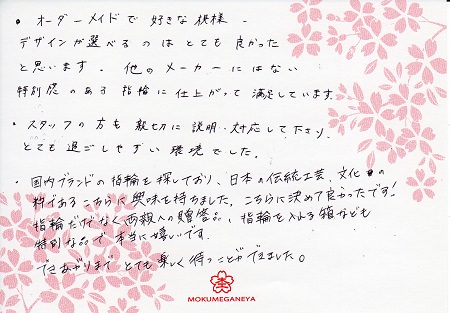 ・オーダーメイドで好きな模様・
デザインが選べるのはとても良かった
と思います。他のメーカーにはない
特別感のある指輪に仕上がって満足しています。
・スタッフの方も親切に説明・対応して下さり、
とても過ごしやすい環境でした。
・国内ブランドの指輪を探しており、日本の伝統工芸、文化の
粋であるこちらに興味を持ちました。こちらに決めて良かったです!
指輪だけでなく両親への贈答品、指輪を入れる箱なども
特別な品で本当に嬉しいです。
できあがりまでとても楽しく待つことができました。
MOKUMEGANEYA